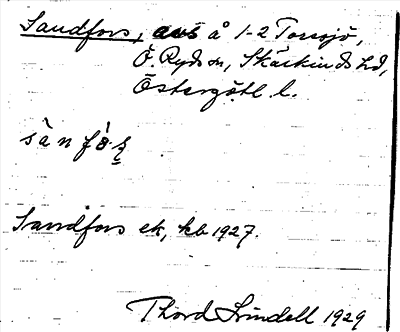 Sandfors, avs å 1-2 Torrsjö,
Ö. Ryds sn, Skärkinds hd,
Östergötl. l.
Sandfors ek, kb 1927.
Thord Lindell 1929